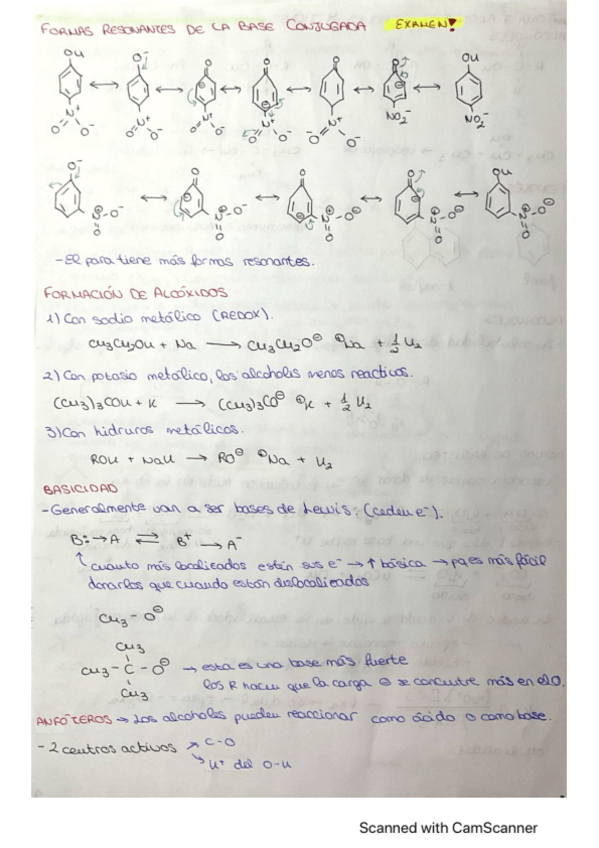 FORMAS RESONANTES DE LA BASE CONJUGADA EXAMEN!
OH O⁻ O O O O OH
N⁺ N⁺ N⁺ N⁺ N⁺ NO₂⁻ NO₂⁻
O O⁻ O O⁻ O O⁻ O O⁻ O⁻ O⁻
O⁻ O O O OH
N-O⁻ N-O⁻ N-O⊖ N-O⊖ N-O⊖
O O O O O
-El para tiene más formas resonantes.
FORMACIÓN DE ALCÓXIDOS
1) Con sodio metálico (REDOX).
CH₃CH₂OH + Na → CH₃CH₂O⊖ ⊕Na + ½ H₂
2) Con potasio metálico, los alcoholes menos reactivos.
(CH₃)₃COH + K → (CH₃)₃CO⊖ ⊕K + ½ H₂
3) Con hidruros metálicos.
ROH + NaH → RO⊖ ⊕Na + H₂
BASICIDAD
-Generalmente van a ser bases de Lewis. (ceden e⁻).
B: → A ⇌ B⁺ → A⁻
↑ cuánto más localizados están sus e⁻ → ↑ básica → pq es más fácil
donarlos que cuando están dislocalizados
CH₃ - O⊖
CH₃
CH₃ - C - O⊖ → esta es una base más fuerte
CH₃ los R hacen que la carga ⊖ se concentre más en el O.
ANFÓTEROS → Los alcoholes pueden reaccionar como ácido o como base.
- 2 centros activos ↗ C-O
↘ H⁺ del O-H
Scanned with CamScanner